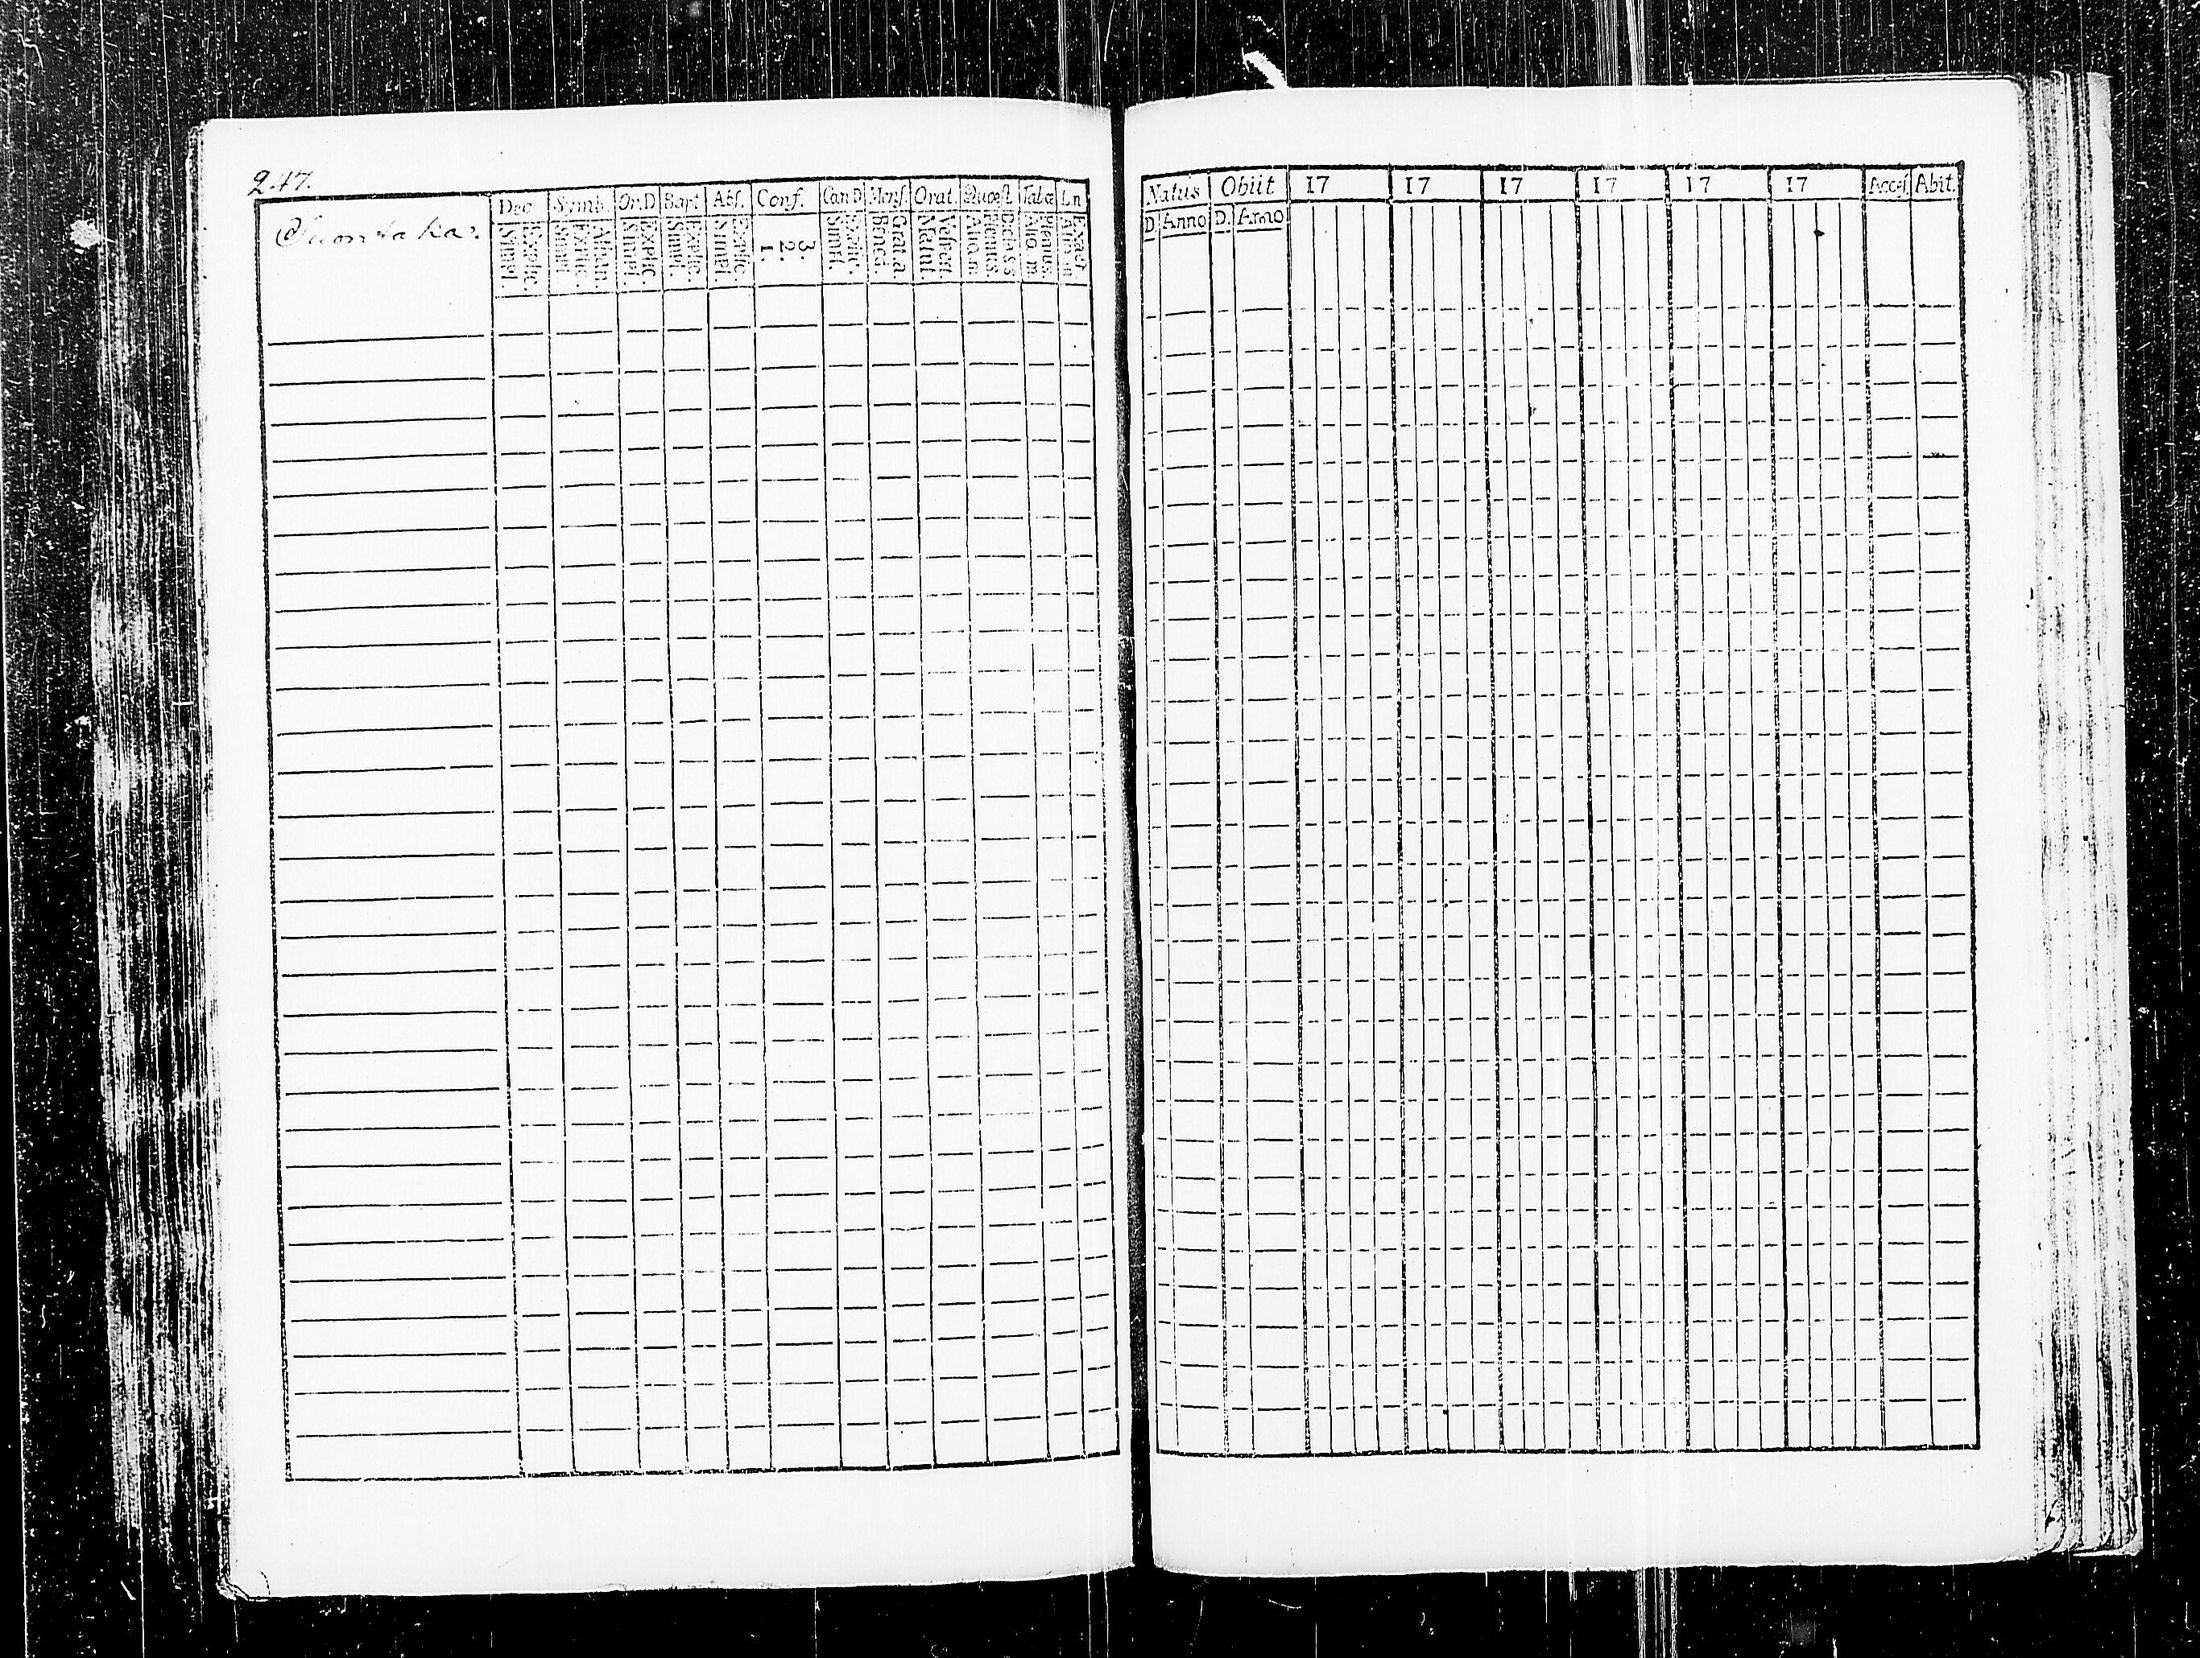 247.
Suontaka.
Dec. Symb. Or.D Bapt. Abs. Conf. Cœn.D Mens. Orat. Quæst. Tabœ Ln
Simpl. Explic. Simpl. Explic. Athan. Simpl. Explic. Simpl. Explic. Simpl. Explic. 1. 2. 3. Simpl. Explic. Bened. Grata. Matut. Vesper. Aliq.m Plenius. Dictas s Aliq.m Plenius. Exact
Natus Obiit 17 17 17 17 17 17 Access. Abit.
D. Anno D. Anno